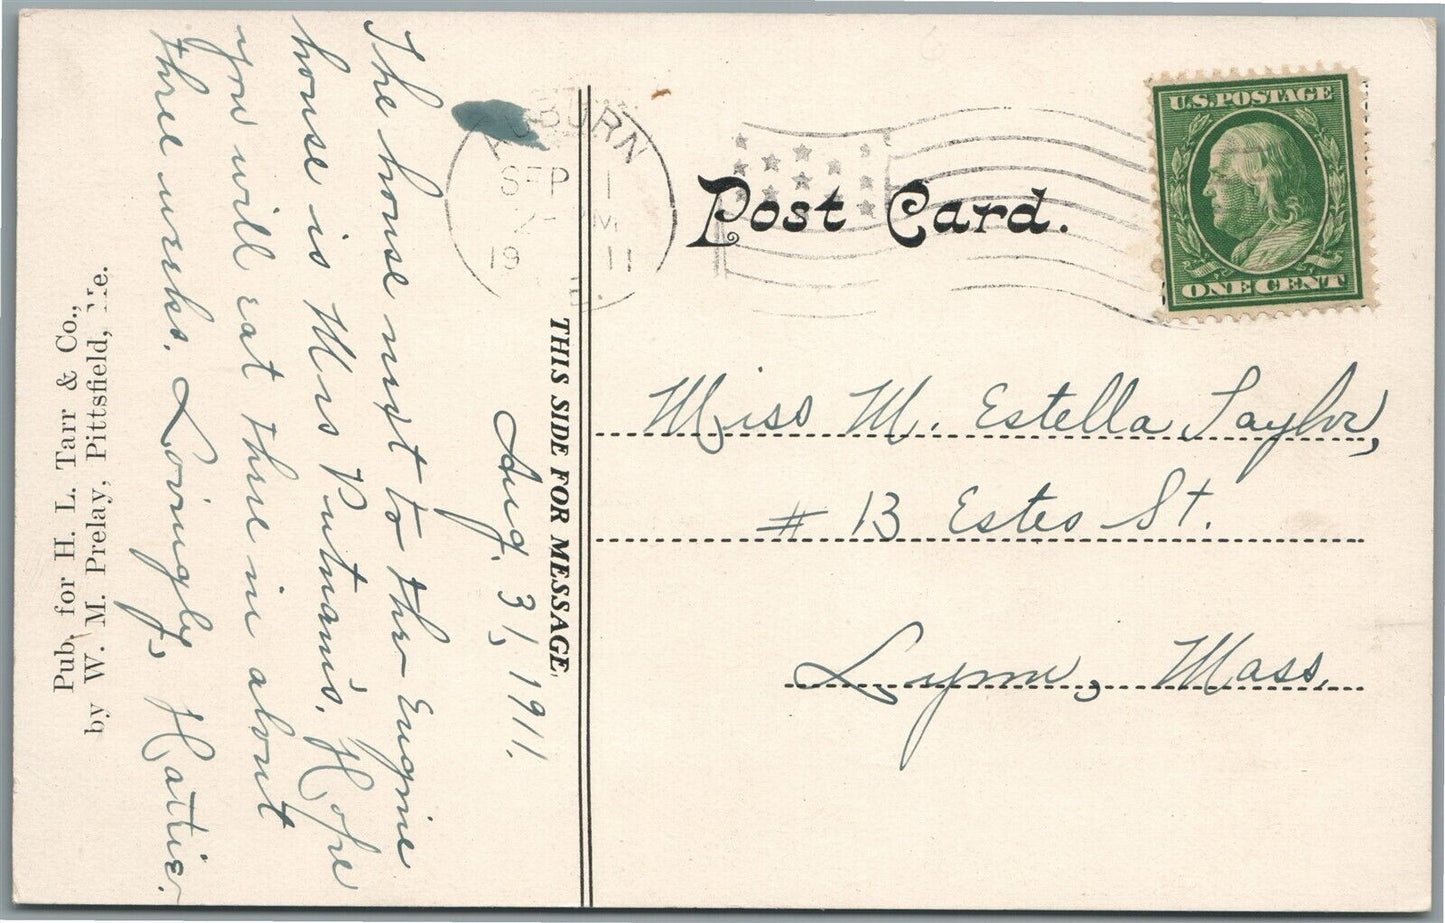 Post Card.
U.S. POSTAGE
ONE CENT
AUBURN
SEP 1
2 - PM
19 11
THIS SIDE FOR MESSAGE.
Aug. 31, 1911.
The house next to the Engine
house is Mrs Putnam's. Hope
you will eat there in about
three weeks. Lovingly, Hattie.
Miss M. Estella Taylor,
# 13 Estes St.
Lynn, Mass.
Pub. for H. L. Tarr & Co.,
by W. M. Prelay, Pittsfield, Me.